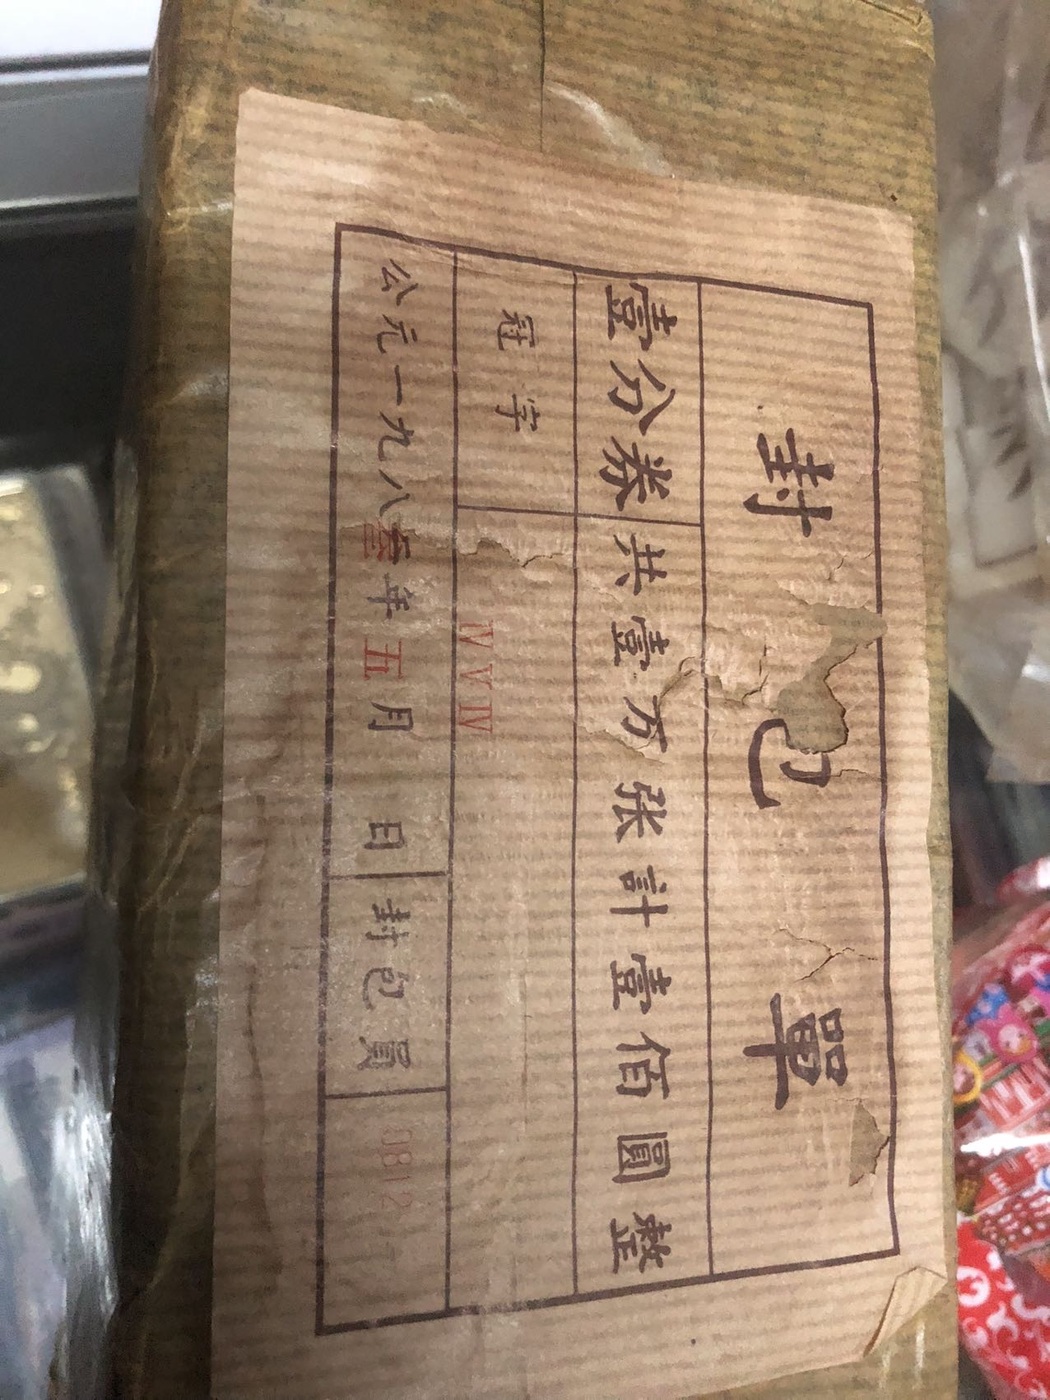 封包單
壹分券 共壹万张計壹佰圓整
冠字 IV V IV
公元一九八叁年五月 日 封包員 0812